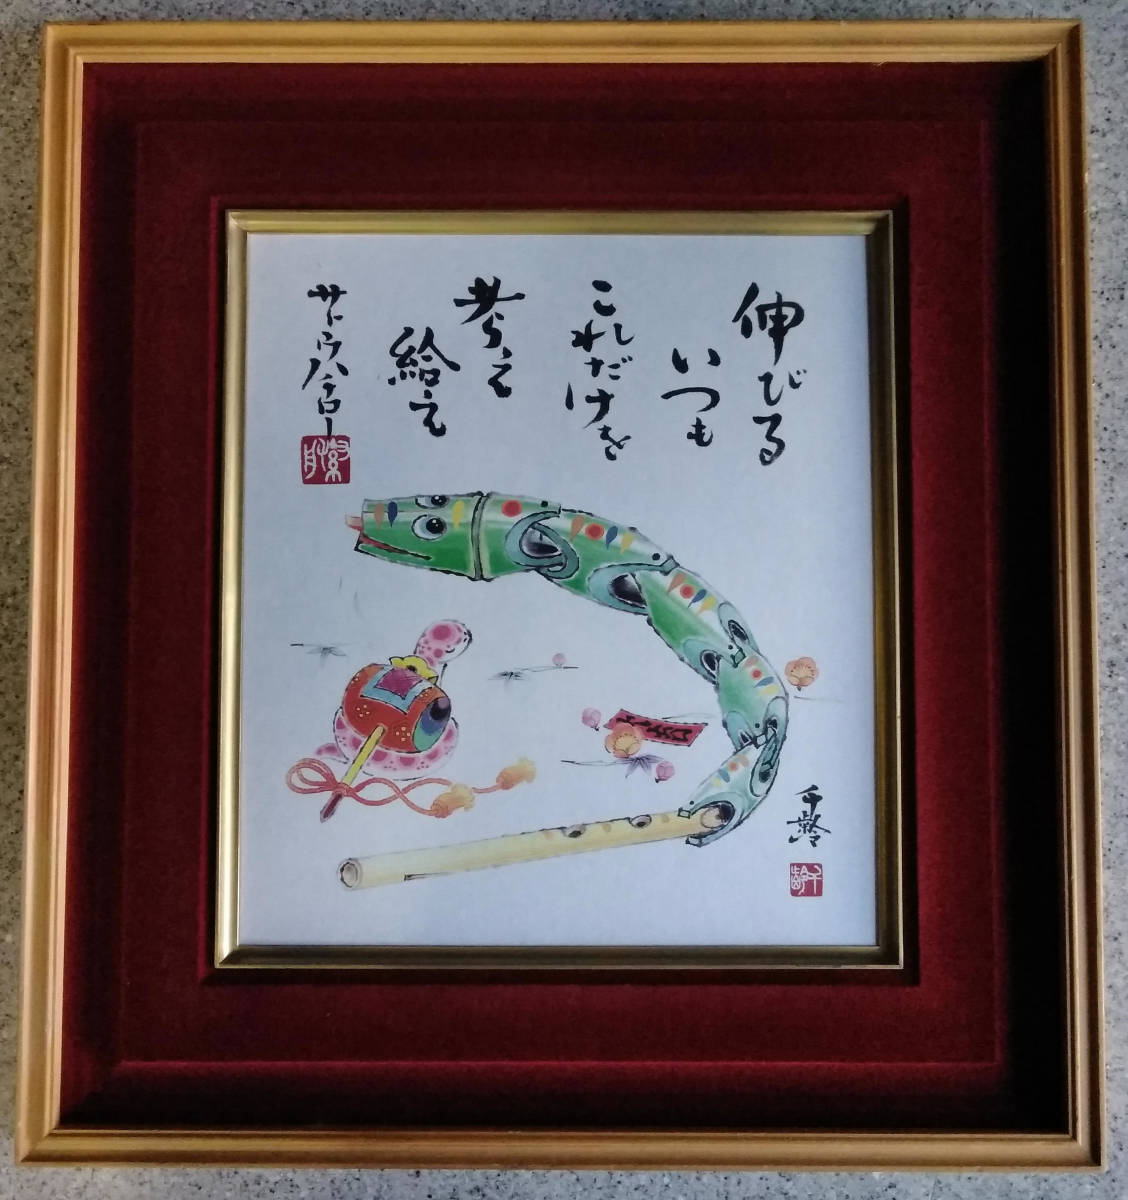 伸びる
いつも
これだけを
考え
給え
サトウハチロー
千齢
千齢